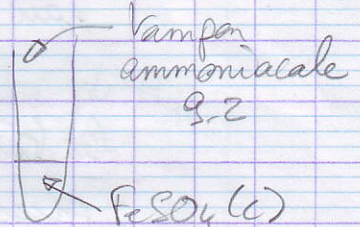 Tampon
ammoniacale
9.2
FeSO4 (C)